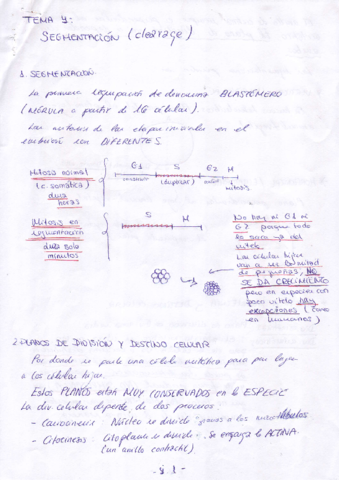 TEMA 4:
SEGMENTACIÓN (cleavage)
1. SEGMENTACIÓN
La primera segmentación se denomina BLASTÓMERO
(MÓRULA a partir de 16 células).
Las mitosis de las etapas iniciales en el
embrión son DIFERENTES.
Mitosis normal
(c. somática)
dura
horas
G1 S G2 M
crecimiento (duplicac.) mitosis
Mitosis en
segmentación
dura solo
minutos
S M
No hay ni G1 ni
G2 porque todo
se saca → del
vitelo
Las células hijas
van a ser la mitad
de pequeñas, NO
SE DA CRECIMIENTO
pero en especies con
poco vitelo hay
excepciones (como
en humanos)
2. PLANOS DE DIVISIÓN Y DESTINO CELULAR
Por donde se parte una célula mitótica para dar lugar
a las células hijas.
Estos PLANOS están MUY CONSERVADOS en la ESPECIE
La div. celular depende de dos procesos:
- Cariocinesis: Núcleo se divide gracias a los microtúbulos.
- Citocinesis: Citoplasma se divide. Se encarga la ACTINA.
(un anillo contráctil)